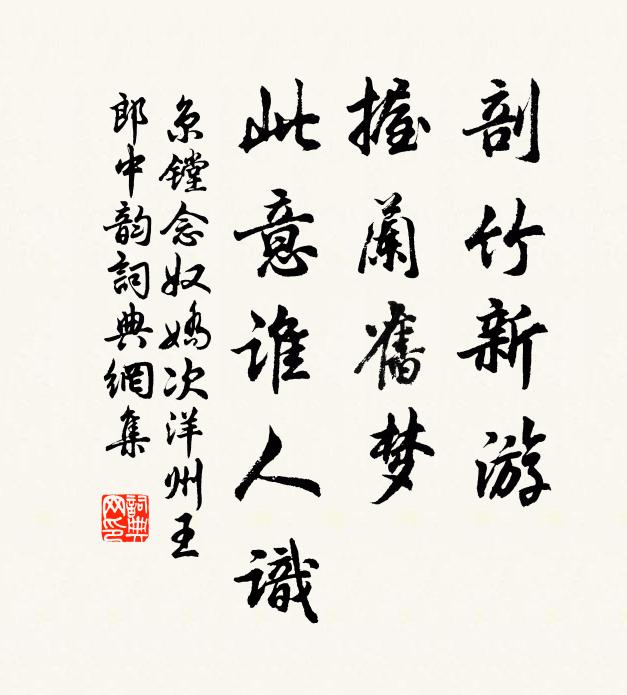 剖竹新游
握蘭舊梦
此意谁人識
京镗念奴嬌次洋州王
郎中韵詞典網集
詞典网印